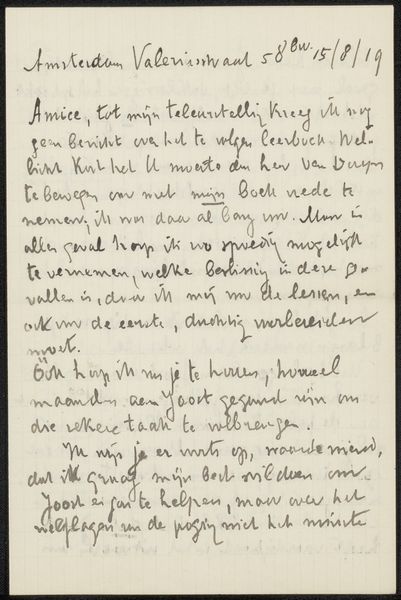 Amsterdam Valeriusstraat 58 bv. 15/8/19
Amice, tot mijn teleurstellig kreeg ik nog
geen bericht over het te volgen leerboek. Wel-
licht kost het U moeite den heer Van
te bewegen om met mijn boek vrede te
nemen; ik was daar al bang voor. Maar in
alles geval hoop ik zoo spoedig mogelijk
te vernemen, welke beslissing in deze ge-
vallen is, daar ik mij voor de lessen, en
ook voor de eerste, duchtig voorbereiden
moet.
Ook hoop ik van je te hooren, hoeveel
maanden aan Joost gegund zijn om
die zekere taak te volbrengen.
Ik wijs je er vorts op, waarde vriend,
dat ik graag mijn best wil doen om
Joost er aan te helpen, maar over het
welslagen van de poging niet het minste